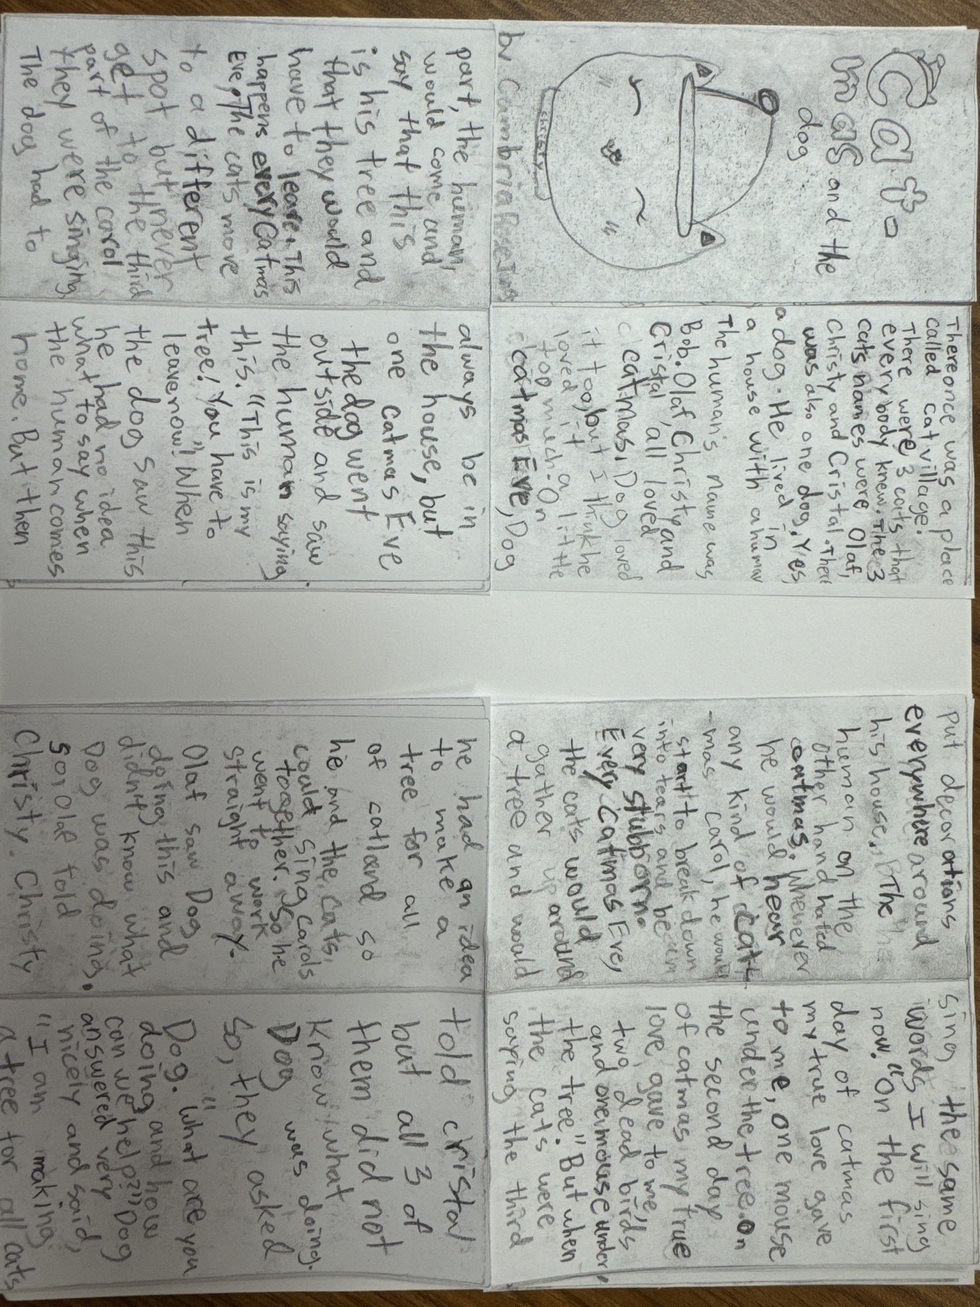 Cat-
mas and the
dog
Christy
by Cambria Rose
There once was a place
called cat village.
There were 3 cats that
every body knew. The 3
cats names were Olaf,
Christy and Cristal. There
was also one dog. Yes,
a dog. He lived in
a house with a human
The human's name was
Bob. Olaf, Christy and
Cristal, all loved
catmas. Dog loved
it too, but I think he
loved it a little
too much. On
catmas Eve, Dog
put decorations
everywhere around
his house. The
human on the
other hand hated
catmas. Whenever
he would hear
any kind of cat-
-mas carol, he would
start to break down
into tears and be
very stubborn.
Every catmas Eve,
the cats would
gather up around
a tree and would
sing the same
words I will sing
now. "On the first
day of catmas
my true love gave
to me, one mouse
under the tree. On
the second day
of catmas my true
love gave to me,
two dead birds
and one mouse under,
the tree." But when
the cats were
saying the third
part, the human,
would come and
say that this
is his tree and
that they would
have to leave. This
happens every Catmas
Eve. The cats move
to a different
spot but never
get to the third
part of the carol
they were singing.
The dog had to
always be in
the house, but
one catmas Eve
the dog went
outside and saw
the human saying
this. "This is my
tree! You have to
leave now!" When
the dog saw this
he had no idea
what to say when
the human comes
home. But then
he had an idea
to make a
tree for all
of catland so
he and the cats,
could sing carols
together. So he
went to work
straight away.
Olaf saw Dog
doing this and
didn't know what
Dog was doing,
so Olaf told
Christy. Christy
told cristal
but all 3 of
them did not
know what
Dog was doing.
So, they asked
Dog. "What are you
doing and how
can we help?" Dog
answered very
nicely and said,
"I am making
a tree for all cats